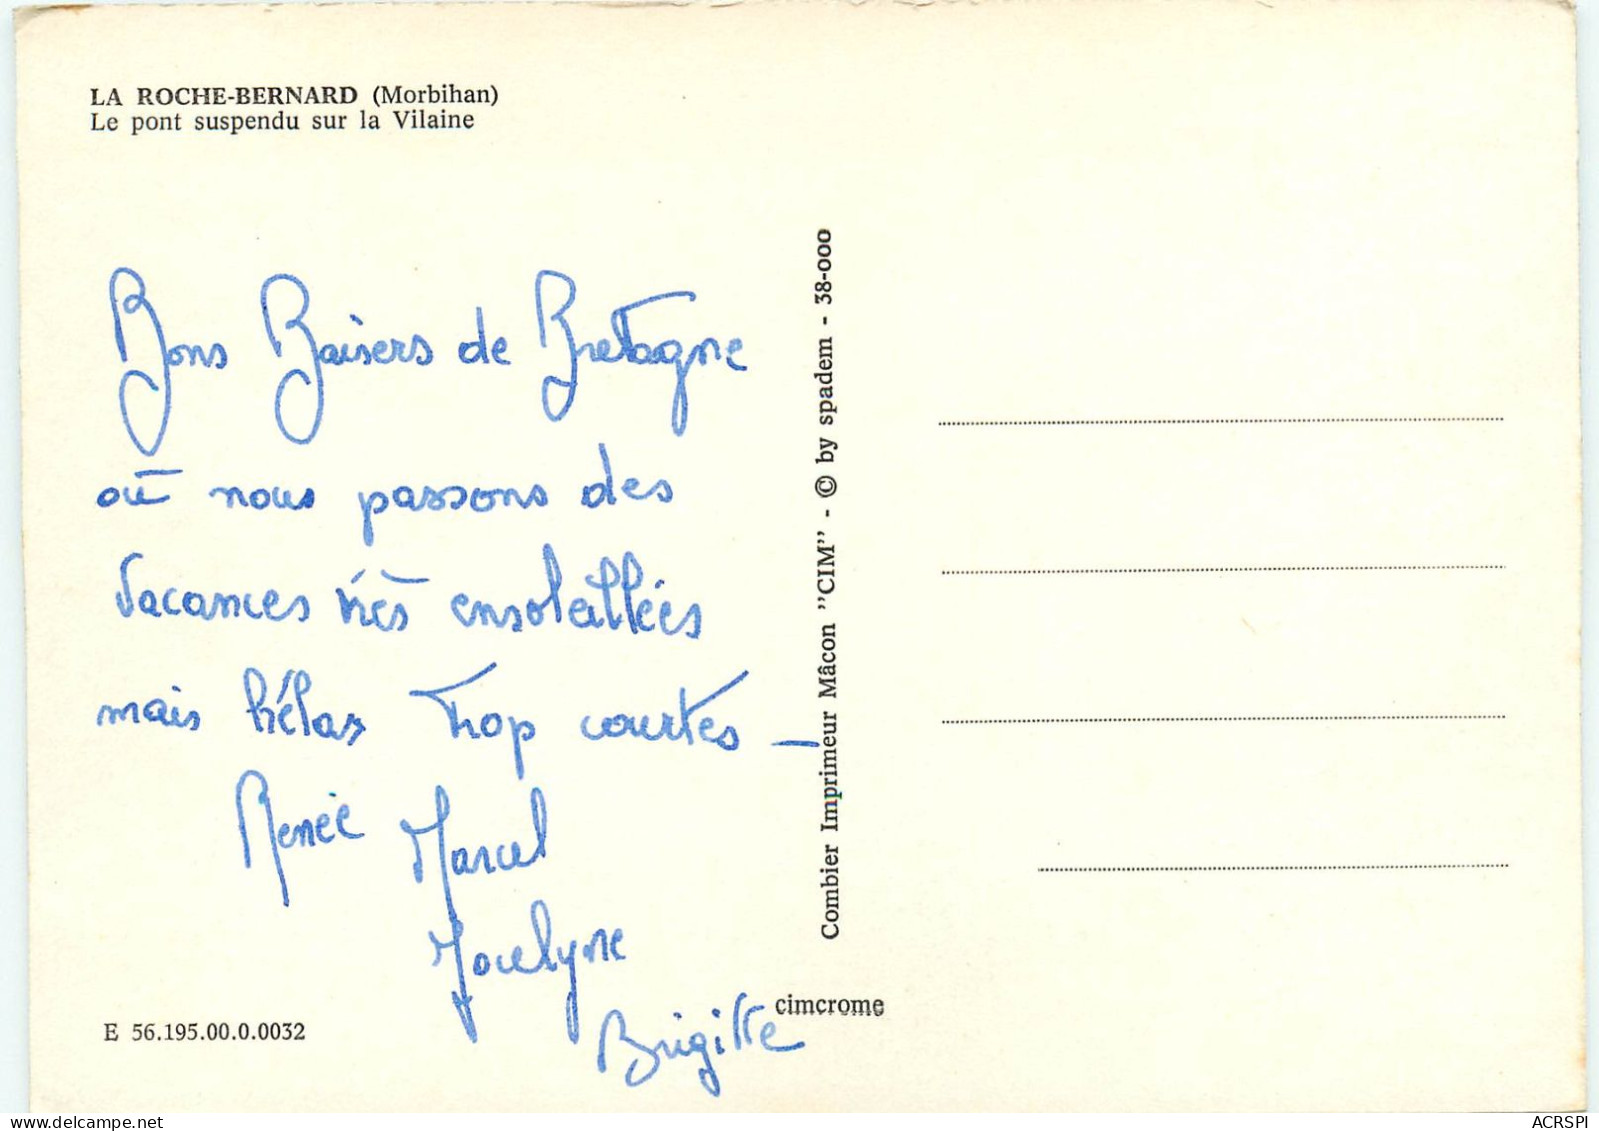 LA ROCHE-BERNARD (Morbihan)
Le pont suspendu sur la Vilaine
Bons Baisers de Bretagne
où nous passons des
vacances très ensoleillées
mais hélas trop courtes —
Renée
Marcel
Jocelyne
Brigitte
E 56.195.00.0.0032
Combier Imprimeur Mâcon "CIM" - © by spadem - 38-000
cimcrome
www.delcampe.net
ACRSPI